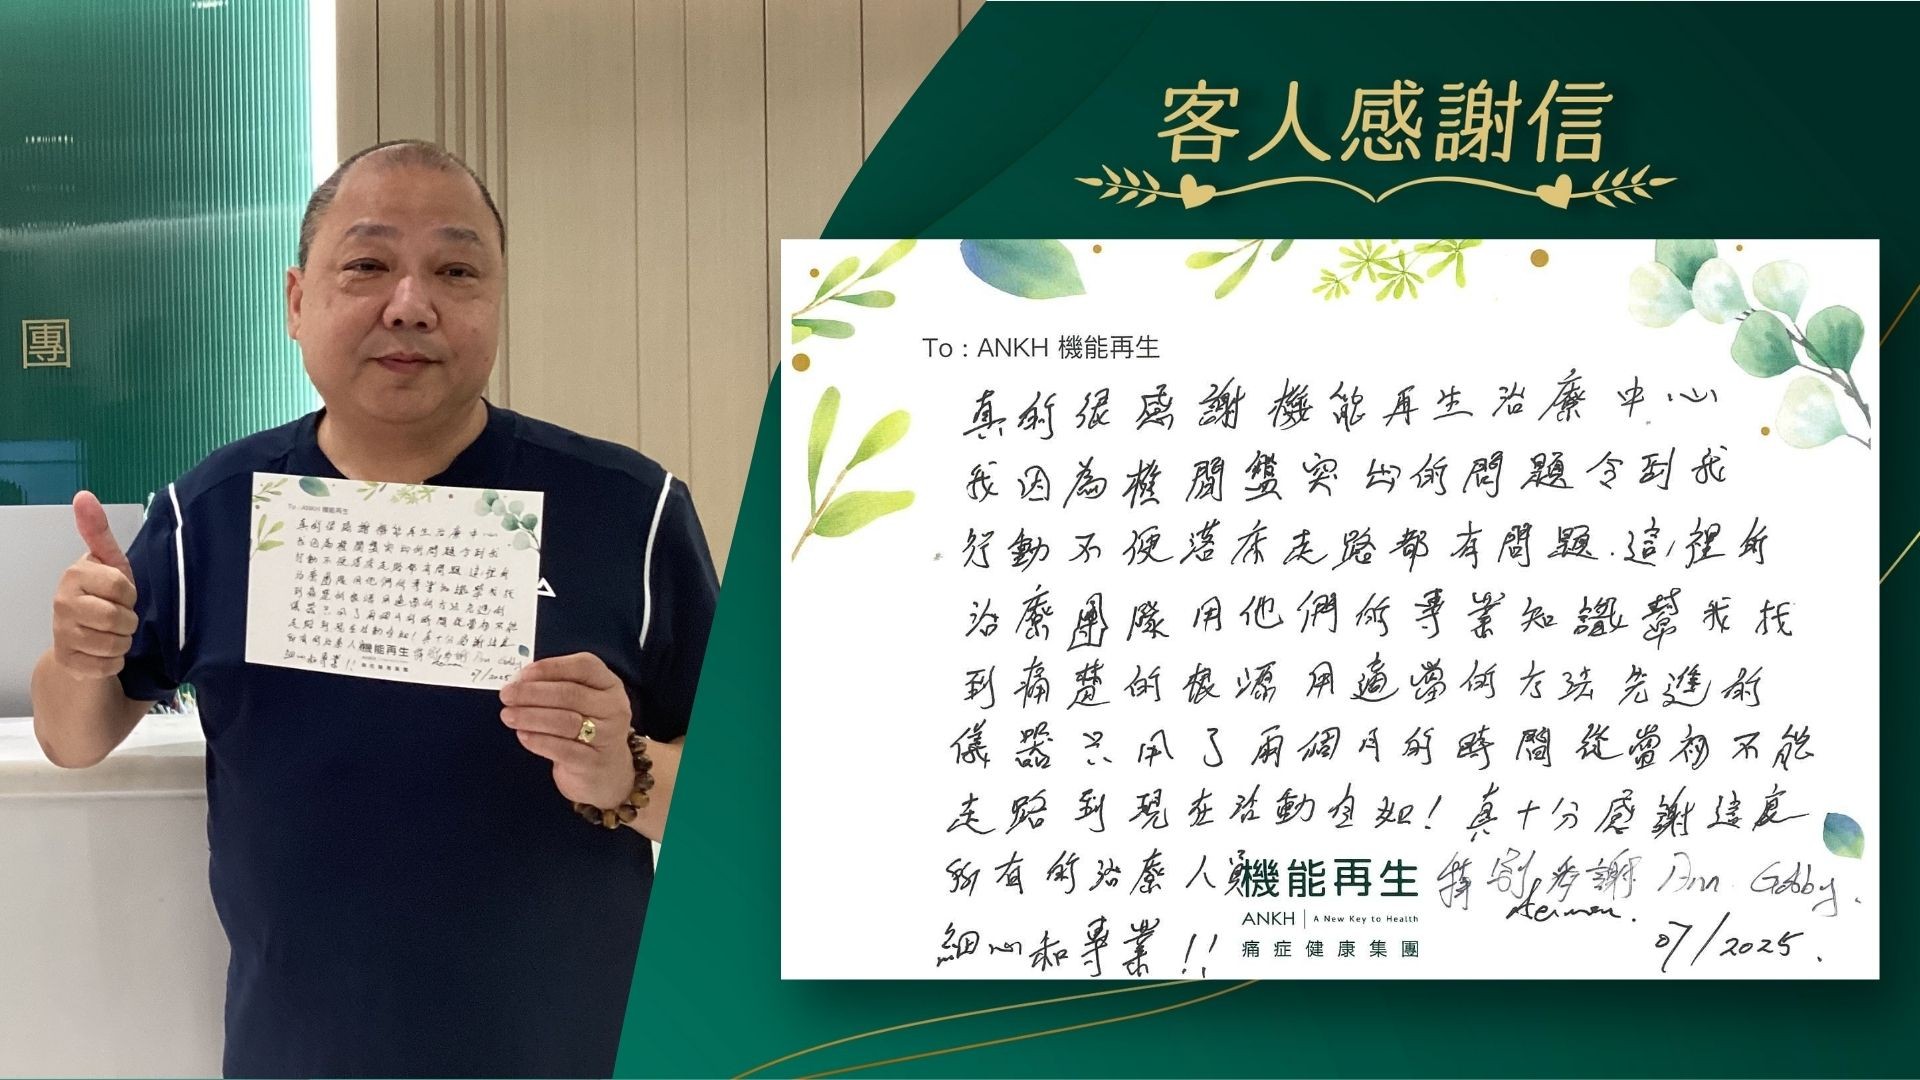 團
客人感謝信
To : ANKH 機能再生
真的很感謝機能再生治療中心
我因為椎間盤突出的問題令到我
行動不便落床走路都有問題.這裡的
治療團隊用他們的專業知識幫我找
到痛楚的根源用適當的方法先進的
儀器只用了兩個月的時間從當初不能
走路到現在活動自如!真十分感謝這處
所有的治療人員 特別多謝 Ann Gabby.
Herman.
細心和專業!!
07/2025.
機能再生
ANKH | A New Key to Health
痛症健康集團